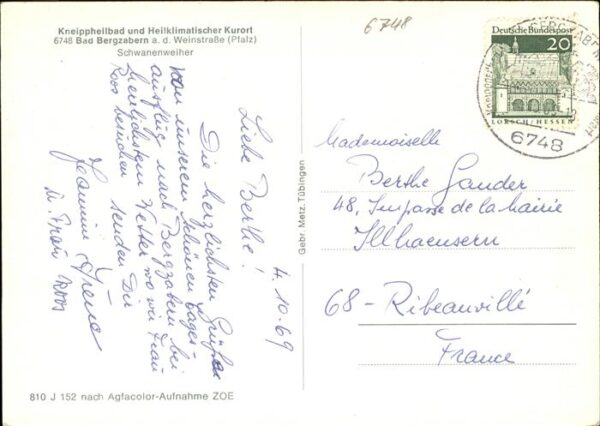 Kneippheilbad und Heilklimatischer Kurort
6748 Bad Bergzabern a. d. Weinstraße (Pfalz)
Schwanenweiher
4.10.69
Liebe Berthe!
Die herzlichsten Grüße
von unserem schönen Tages
ausflug nach Bergzabern bei
herrlichstem Wetter wo wir Frau
Roos besuchen senden Dir
Irena
u. Frau Roos
810 J 152 nach Agfacolor-Aufnahme ZOE
Gebr. Metz, Tübingen
6748
Deutsche Bundespost
20
LORSCH/HESSEN
6748
Mademoiselle
Berthe Gander
48, Impasse de la Mairie
Illhaeusern
68 - Ribeauvillé
France